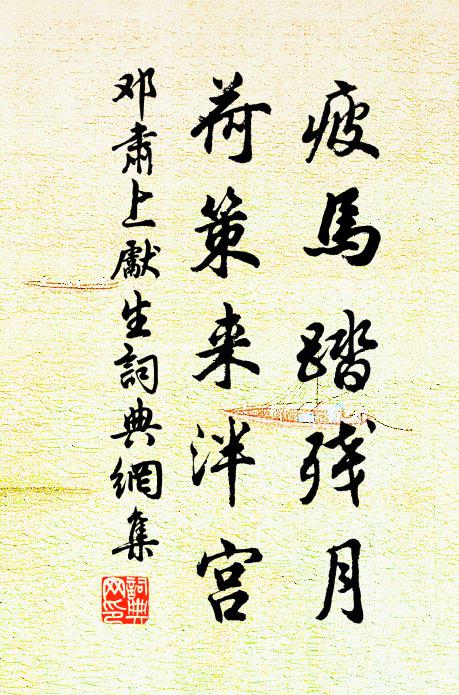 疲馬踏残月
荷策来泮宫
邓肅上獻生詞典網集
詞典
网印